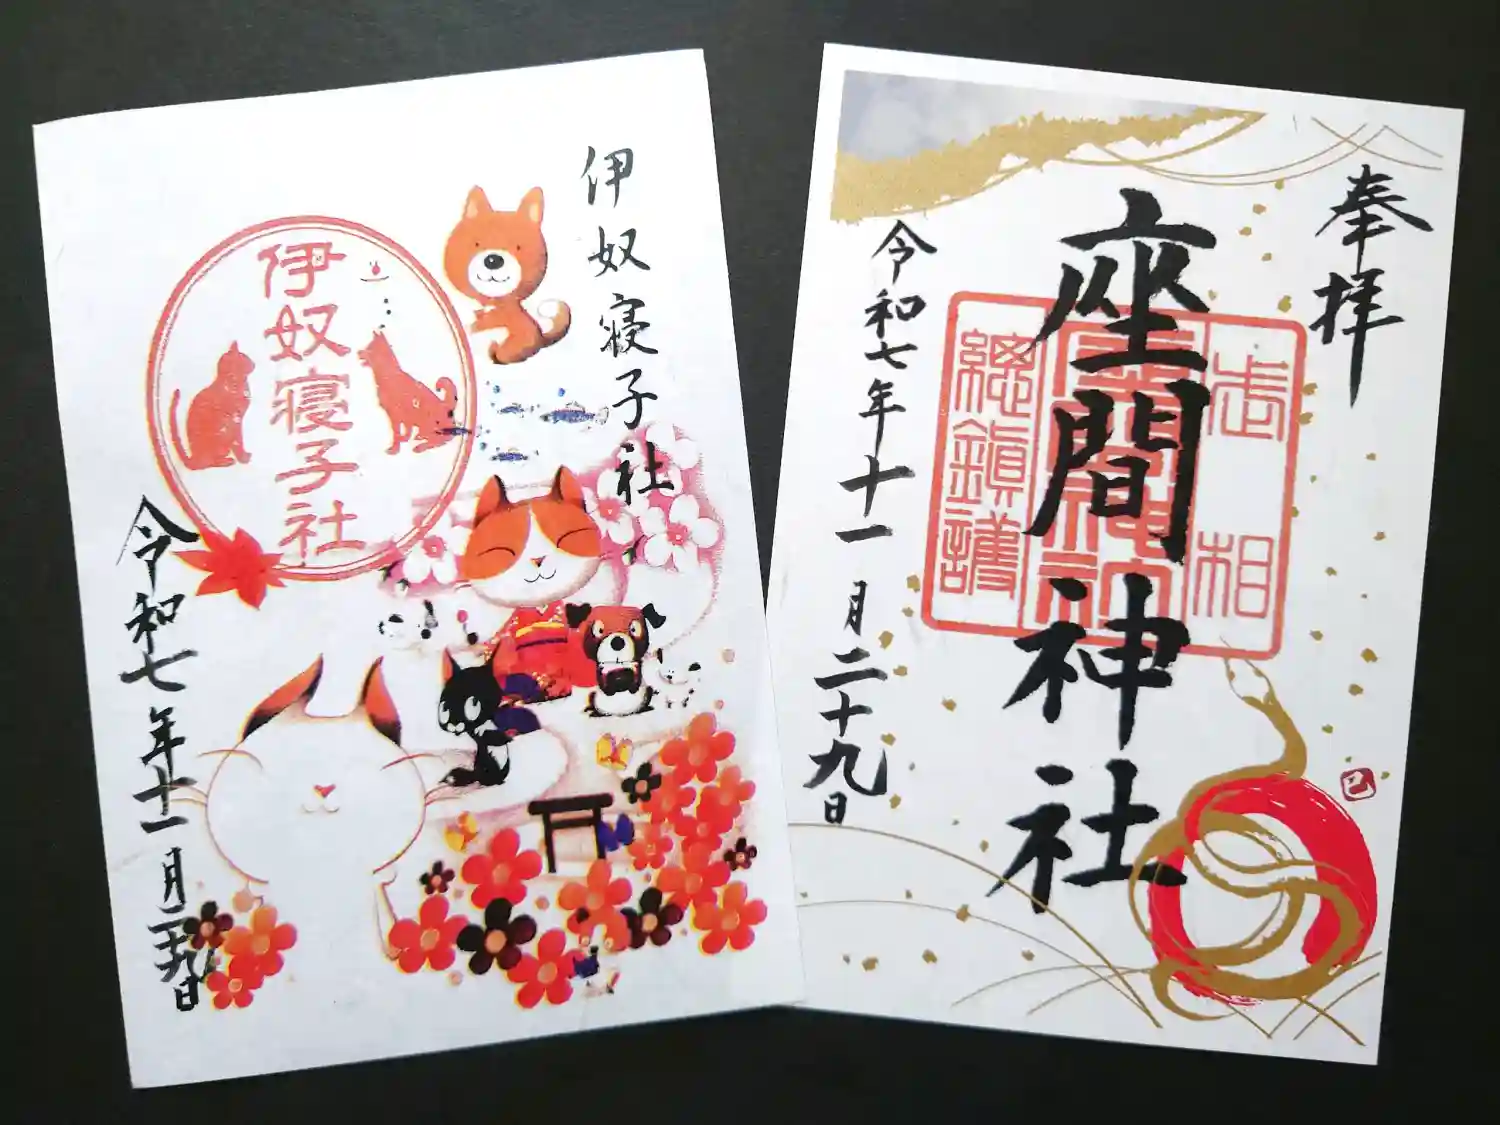 伊奴寝子社
伊奴寝子社
令和七年十一月二十九日
奉拝
座間神社
相武
總鎮護
令和七年十一月二十九日
巳